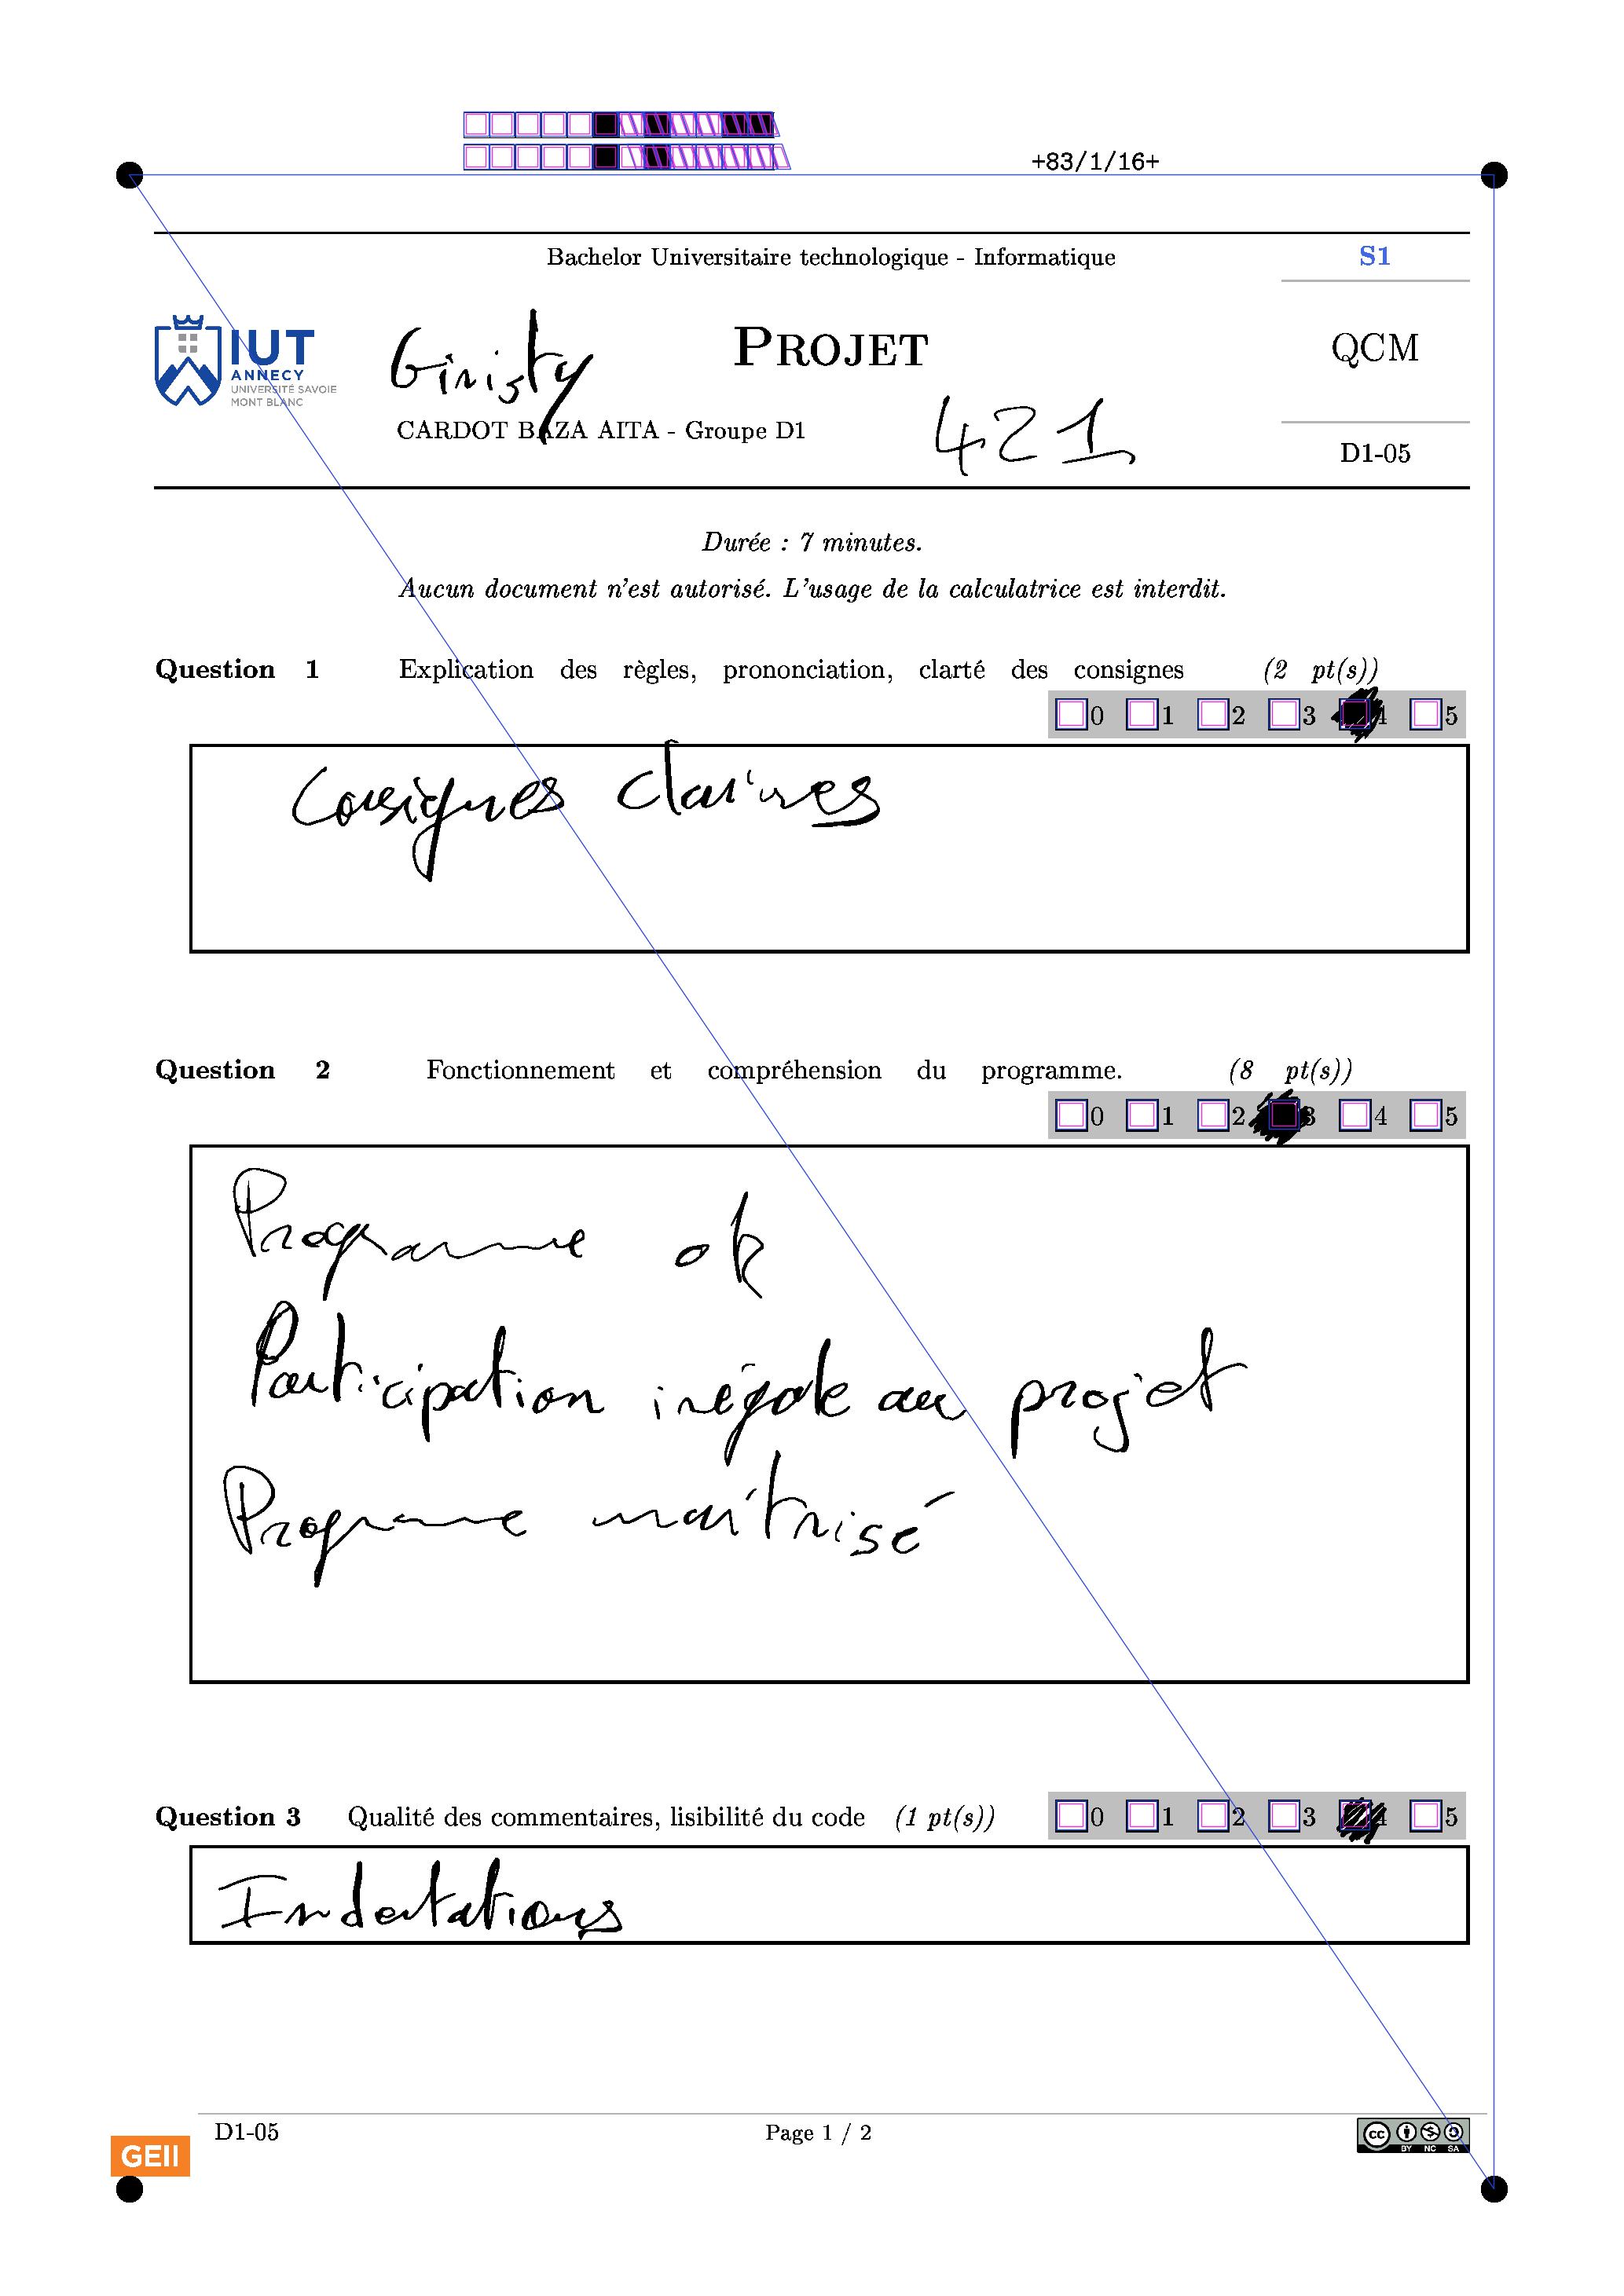 +83/1/16+
Bachelor Universitaire technologique - Informatique
S1
IUT
ANNECY
UNIVERSITÉ SAVOIE
MONT BLANC
Ginisty
PROJET
QCM
CARDOT BAZA AITA - Groupe D1
421
D1-05
Durée : 7 minutes.
Aucun document n'est autorisé. L'usage de la calculatrice est interdit.
Question 1 Explication des règles, prononciation, clarté des consignes (2 pt(s))
0 1 2 3 4 5
Consignes claires
Question 2 Fonctionnement et compréhension du programme. (8 pt(s))
0 1 2 3 4 5
Programme ok
Participation inégale au projet
Programme maîtrisé
Question 3 Qualité des commentaires, lisibilité du code (1 pt(s)) 0 1 2 3 4 5
Indentations
D1-05 Page 1 / 2
GEII
cc BY NC SA